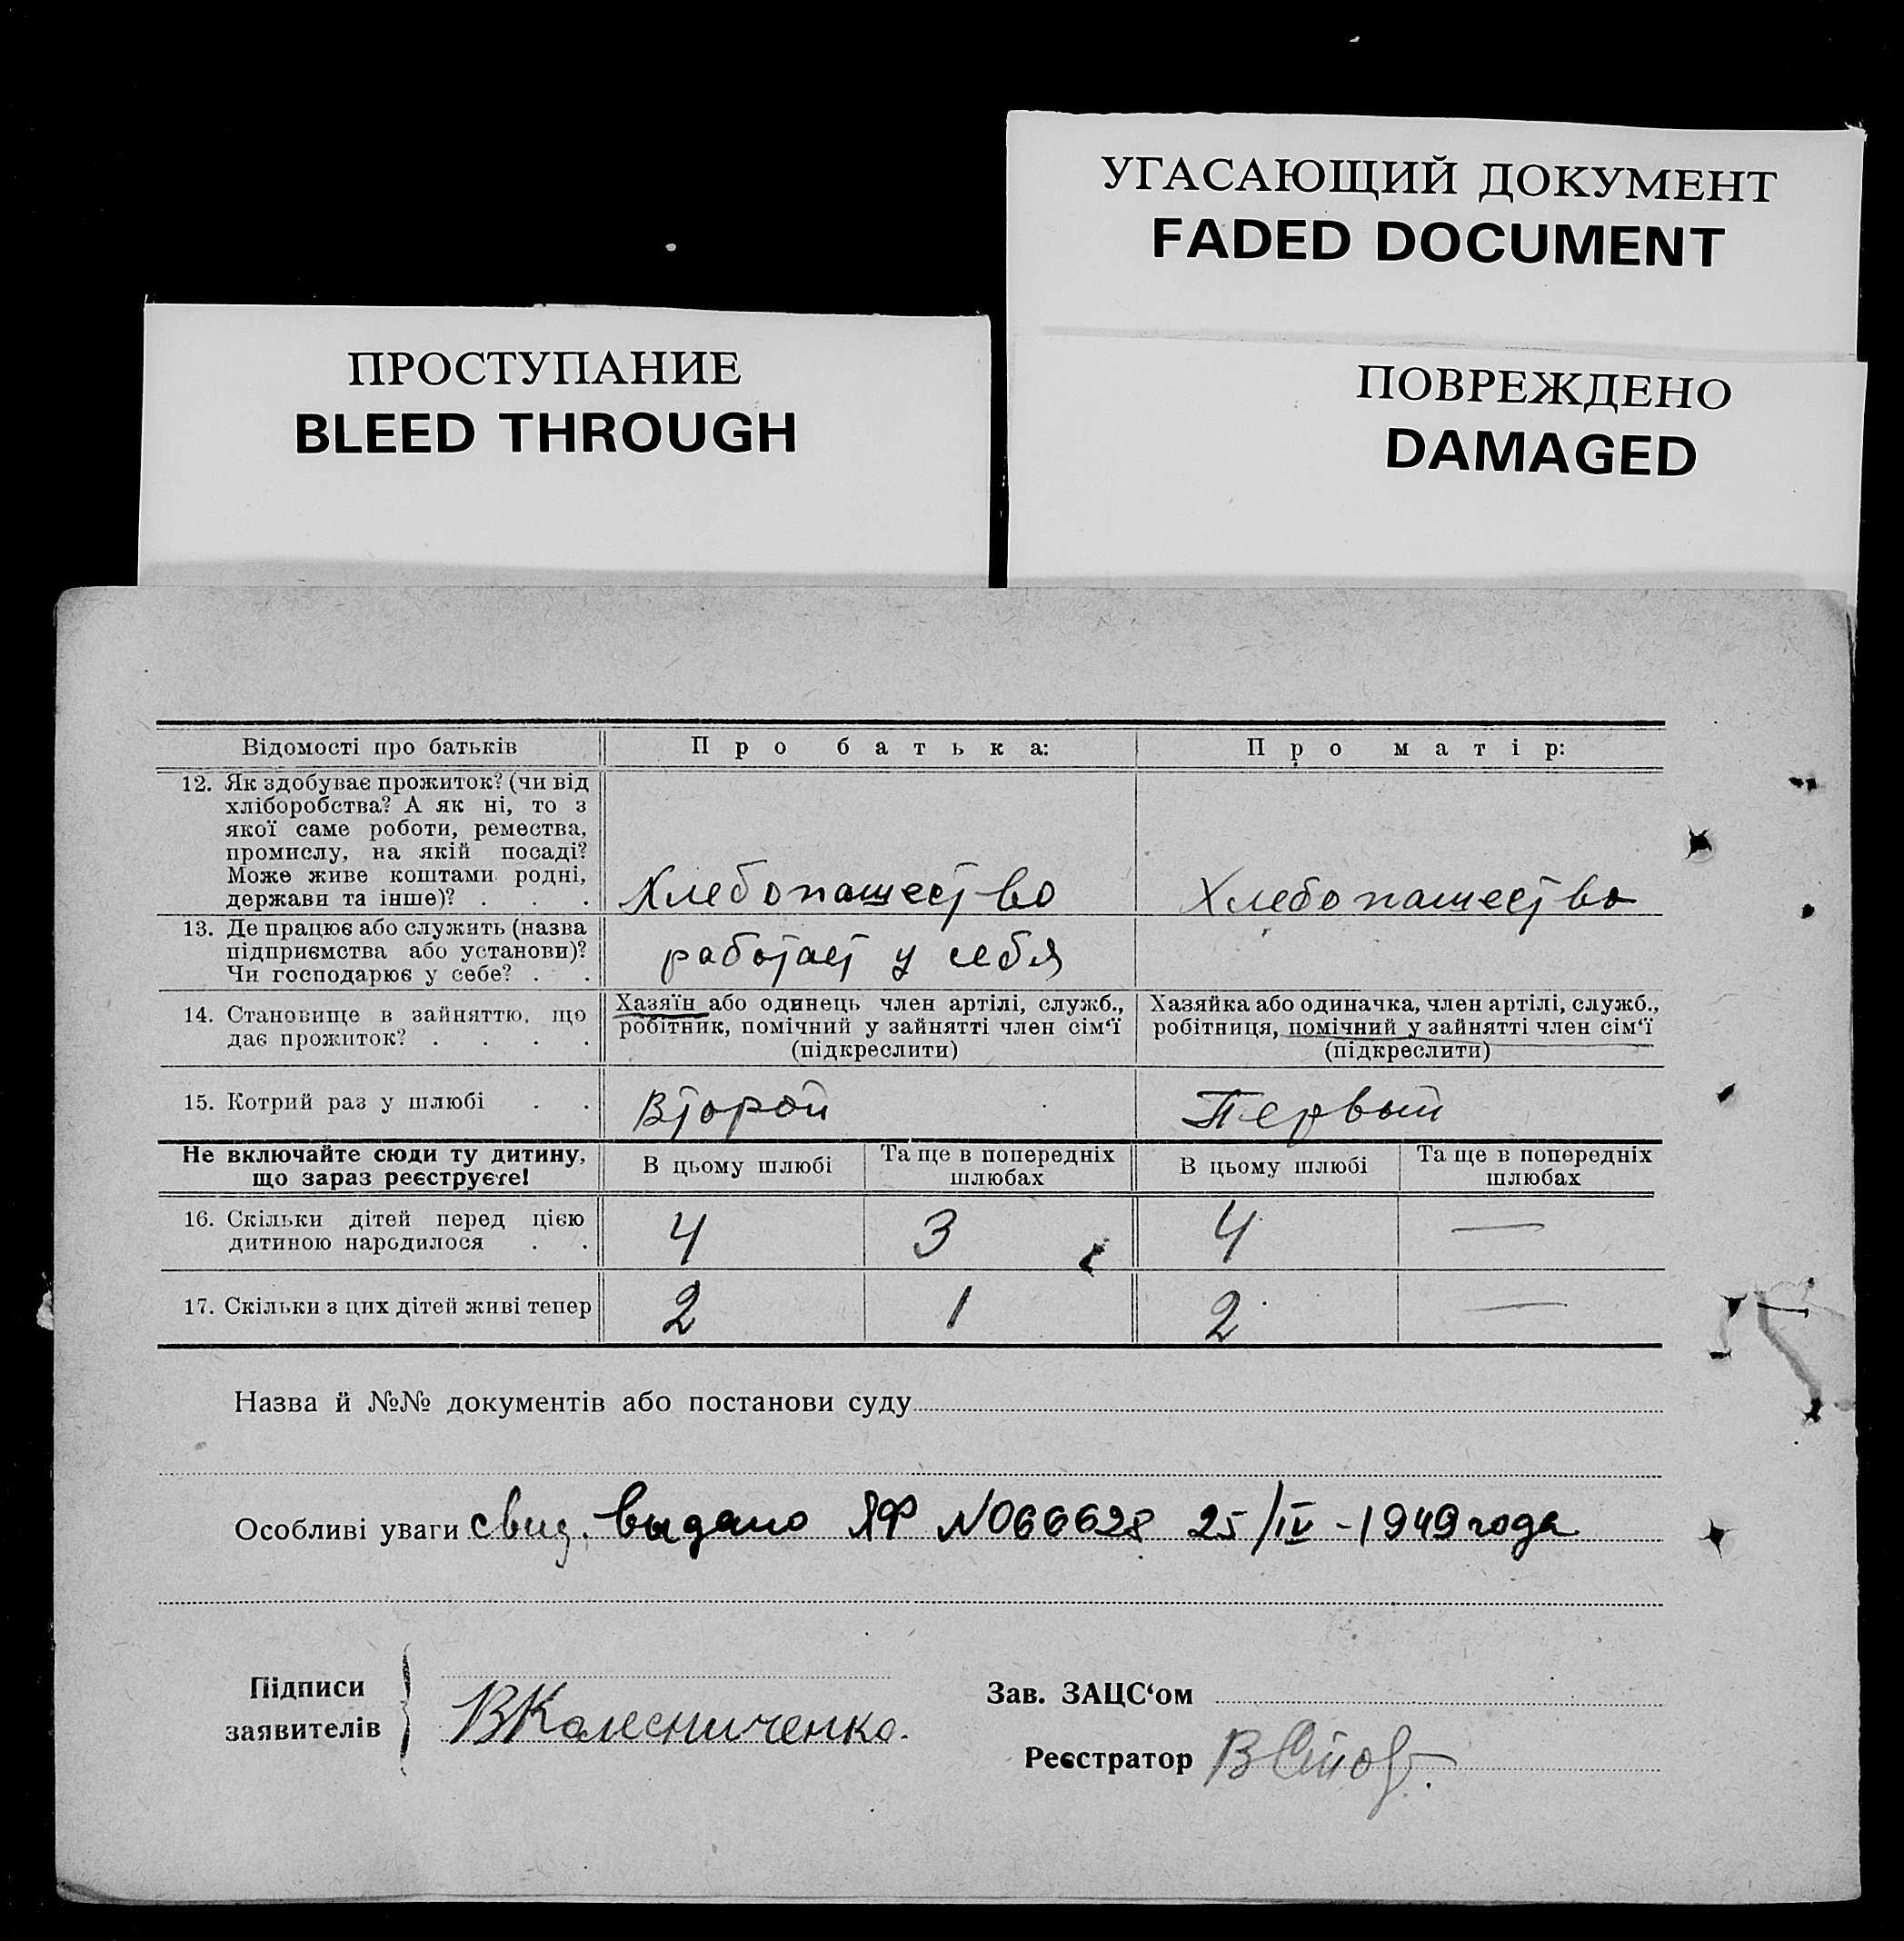 УГАСАЮЩИЙ ДОКУМЕНТ
FADED DOCUMENT
ПРОСТУПАНИЕ
BLEED THROUGH
ПОВРЕЖДЕНО
DAMAGED
Відомості про батьків
Про батька:
Про матір:
12. Як здобуває прожиток? (чи від
хліборобства? А як ні, то з
якої саме роботи, ремества,
промислу, на якій посаді?
Може живе коштами родні,
держави та інше)? . . .
Хлебопашество
Хлебопашество
13. Де працює або служить (назва
підприємства або установи)?
Чи господарює у себе? . .
работает у себя
14. Становище в зайняттю, що
дає прожиток? . . . .
Хазяїн або одинець член артілі, служб.,
робітник, помічний у зайнятті член сім‘ї
(підкреслити)
Хазяйка або одиначка, член артілі, служб.,
робітниця, помічний у зайнятті член сім‘ї
(підкреслити)
15. Котрий раз у шлюбі . .
Второй
Первый
Не включайте сюди ту дитину,
що зараз реєструєте!
В цьому шлюбі
Та ще в попередніх
шлюбах
В цьому шлюбі
Та ще в попередніх
шлюбах
16. Скільки дітей перед цією
дитиною народилося . .
4
3
4
—
17. Скільки з цих дітей живі тепер
2
1
2
—
Назва й №№ документів або постанови суду
Особливі уваги свид. выдано ЯФ N066628 25/IV-1949 года
Підписи
заявителів
ВКолесниченко.
Зав. ЗАЦС‘ом
Реєстратор